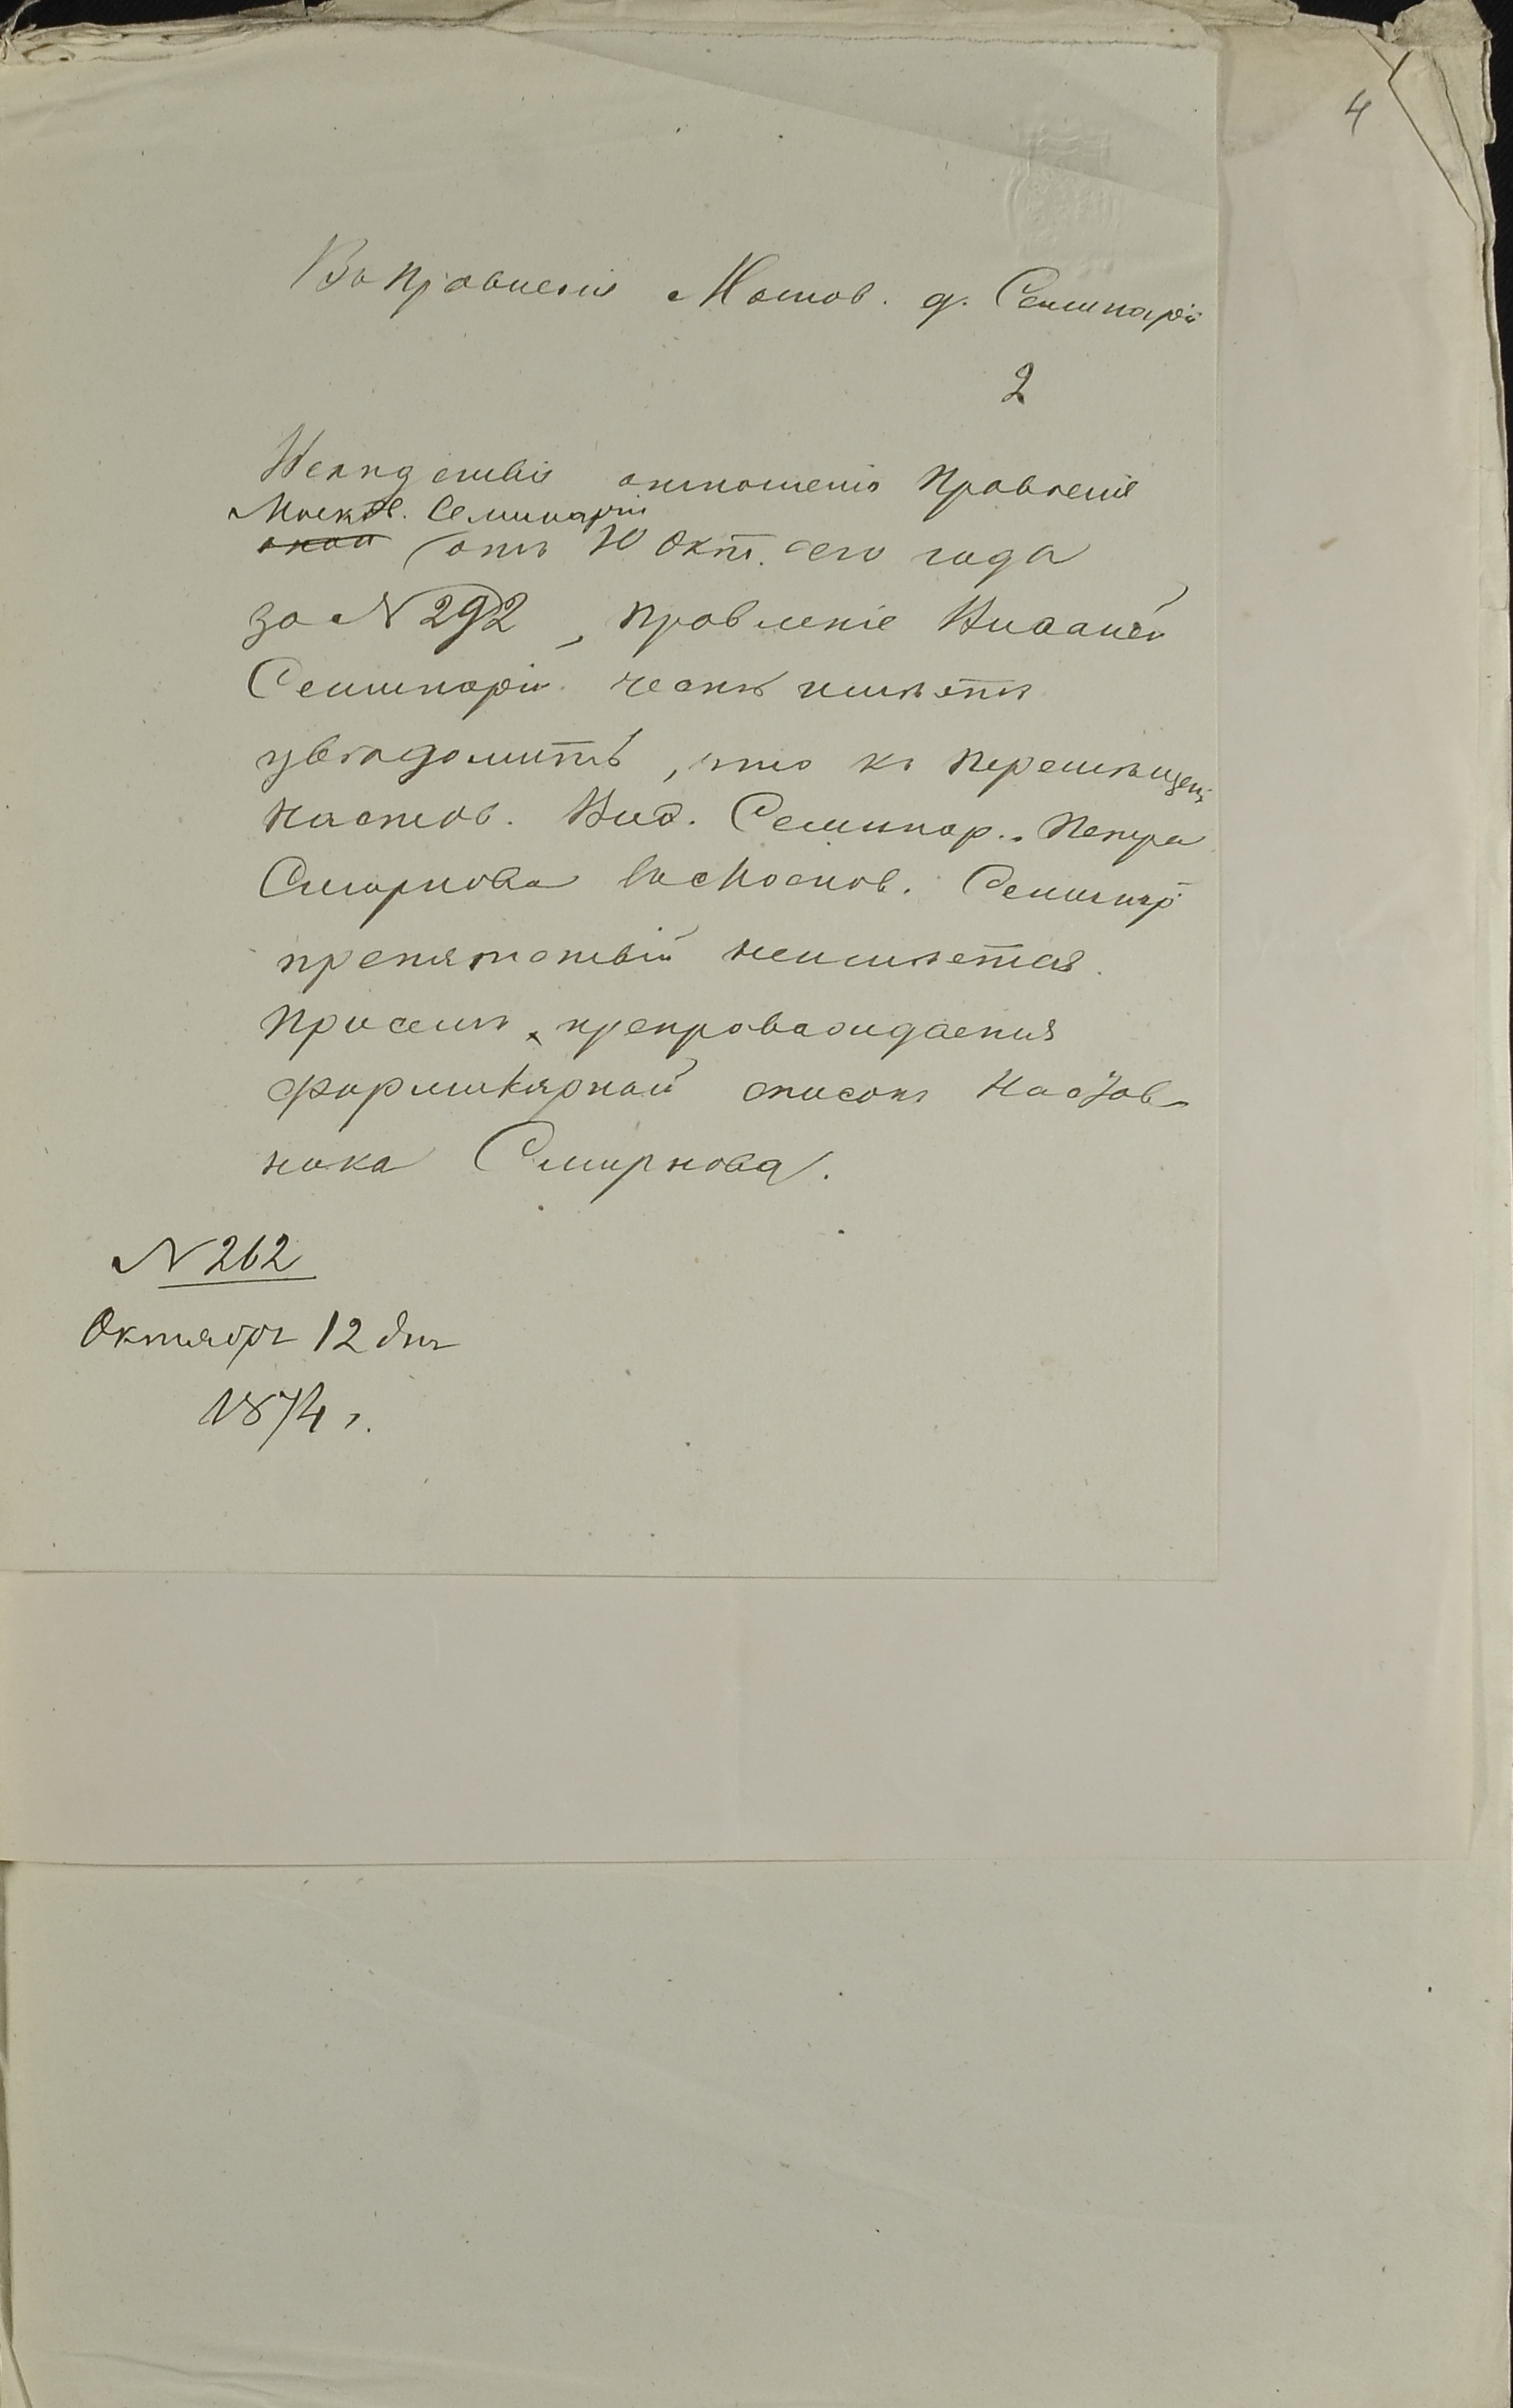 4
Въ Правленіе Москов. д. Семинаріи
2
Вслѣдствіе отношенія Правленія
Москов. Семинаріи
отъ 10 Окт. сего года
за № 292, Правленіе Виѳанской
Семинаріи честь имѣетъ
увѣдомить, что къ перемѣщенію
настав. Виѳ. Семинар. Петра
Смирнова въ Москов. Семинар
препятствій неимѣется.
При семъ препровождается
формулярный списокъ Настав
ника Смирнова.
№ 262
Октября 12 дня
1874 г.